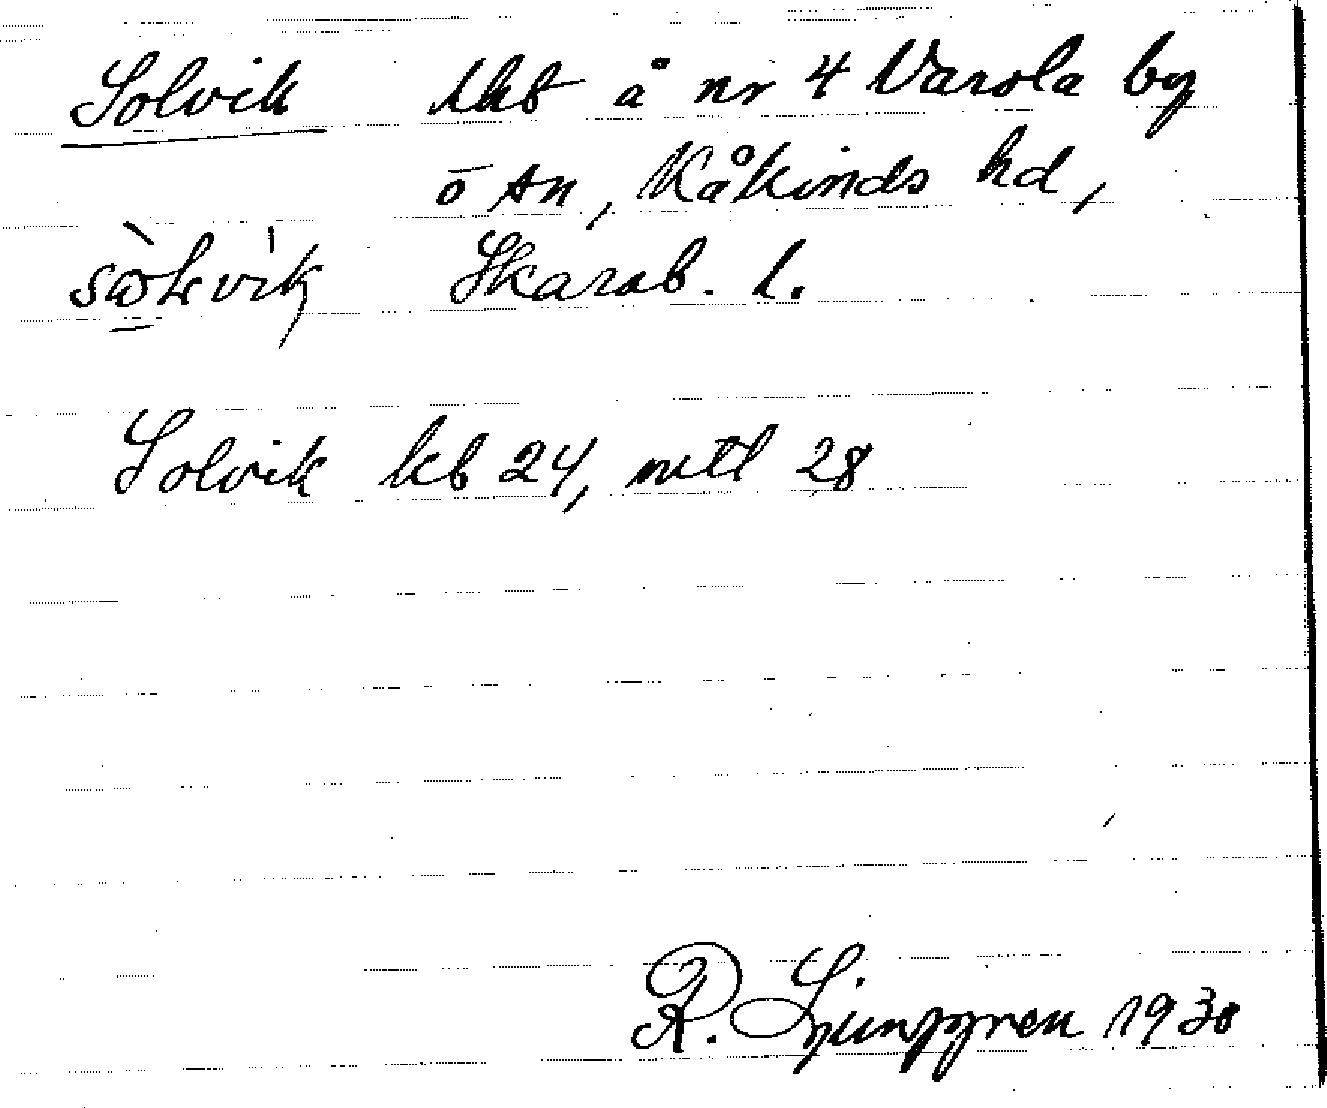 Solvik lht å nr 4 Varola by
ö sn, Kåkinds hd,
Skarab. l.
Solvik kb 24, mtl 28
R. Ljunggren 1930